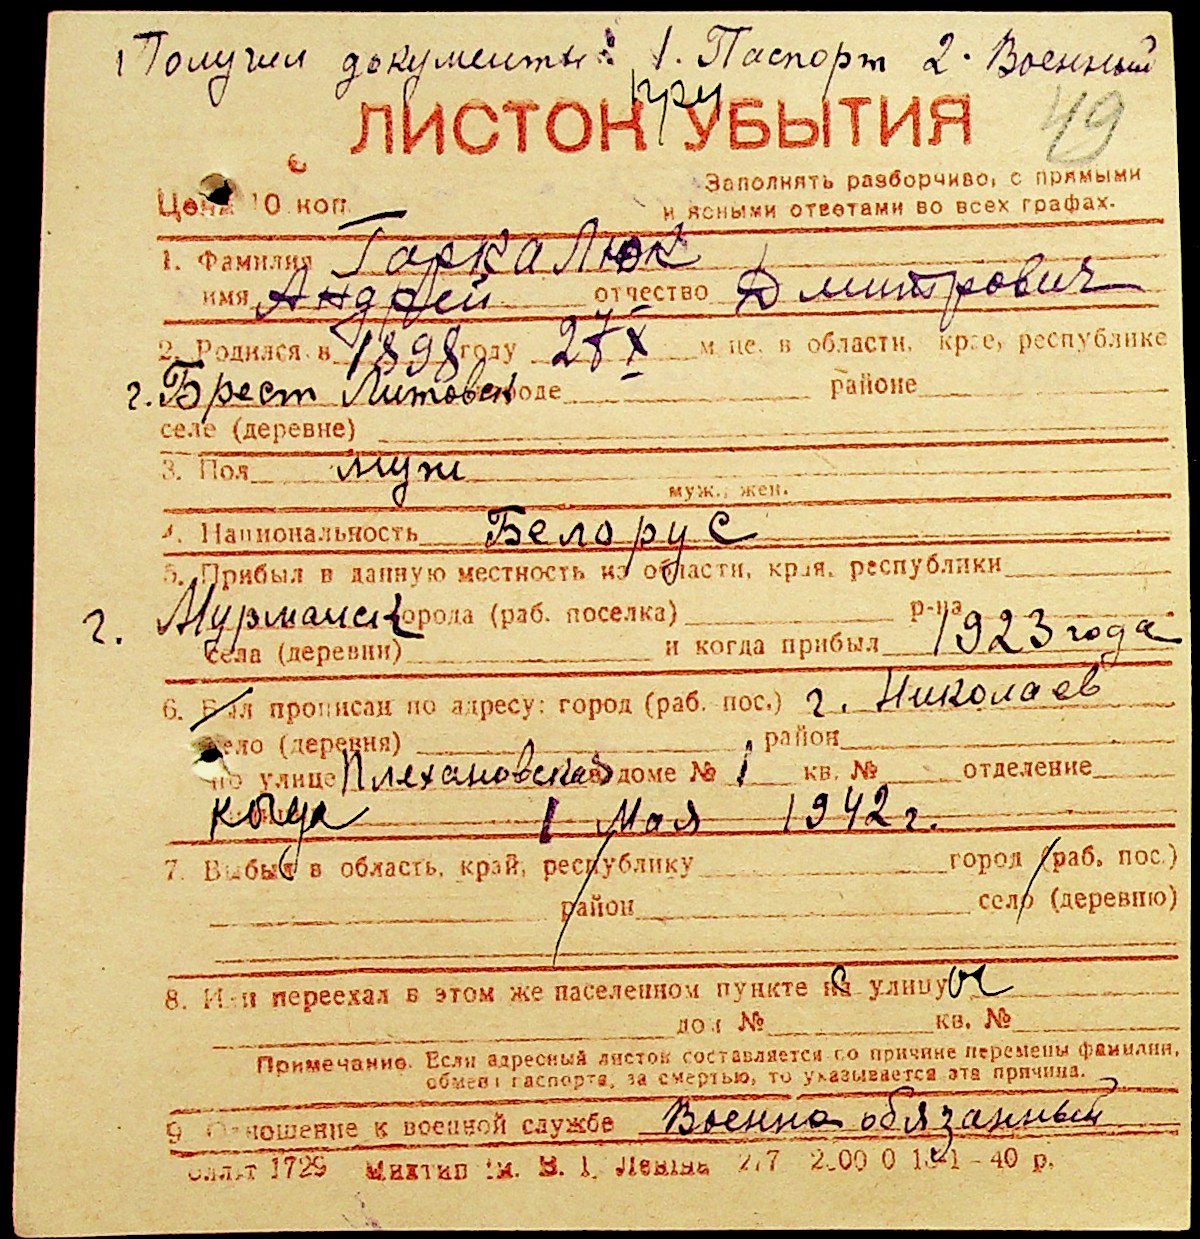 Получил документы: 1. Паспорт 2. Военный
ЛИСТОК УБЫТИЯ
49
Заполнять разборчиво, с прямыми
Цена 10 коп. и ясными ответами во всех графах.
1. Фамилия Гаркалюк
имя Андрей отчество Дмитрович
2. Родился в 1898 году 27 X м-це, в области, крае, республике
г. Брест Литовск городе районе
селе (деревне)
3. Пол муж
муж., жен.
4. Национальность Белорус
5. Прибыл в данную местность из области, края, республики
г. Мурманск города (раб. поселка) р-на
села (деревни) и когда прибыл 1923 года
6. Был прописан по адресу: город (раб. пос.) г. Николаев
село (деревня) район
по улице Плехановская в доме № 1 кв. № отделение
1 Мая 1942 г.
7. Выбыл в область, край, республику город (раб. пос.)
район село (деревню)
8. Или переехал в этом же населенном пункте на улицу
дом № кв. №
Примечание. Если адресный листок составляется по причине перемены фамилии,
обмена паспорта, за смертью, то указывается эта причина.
9. Отношение к военной службе Военно обязанный
1729 Миктип им. В. І. Леніна 40 р.